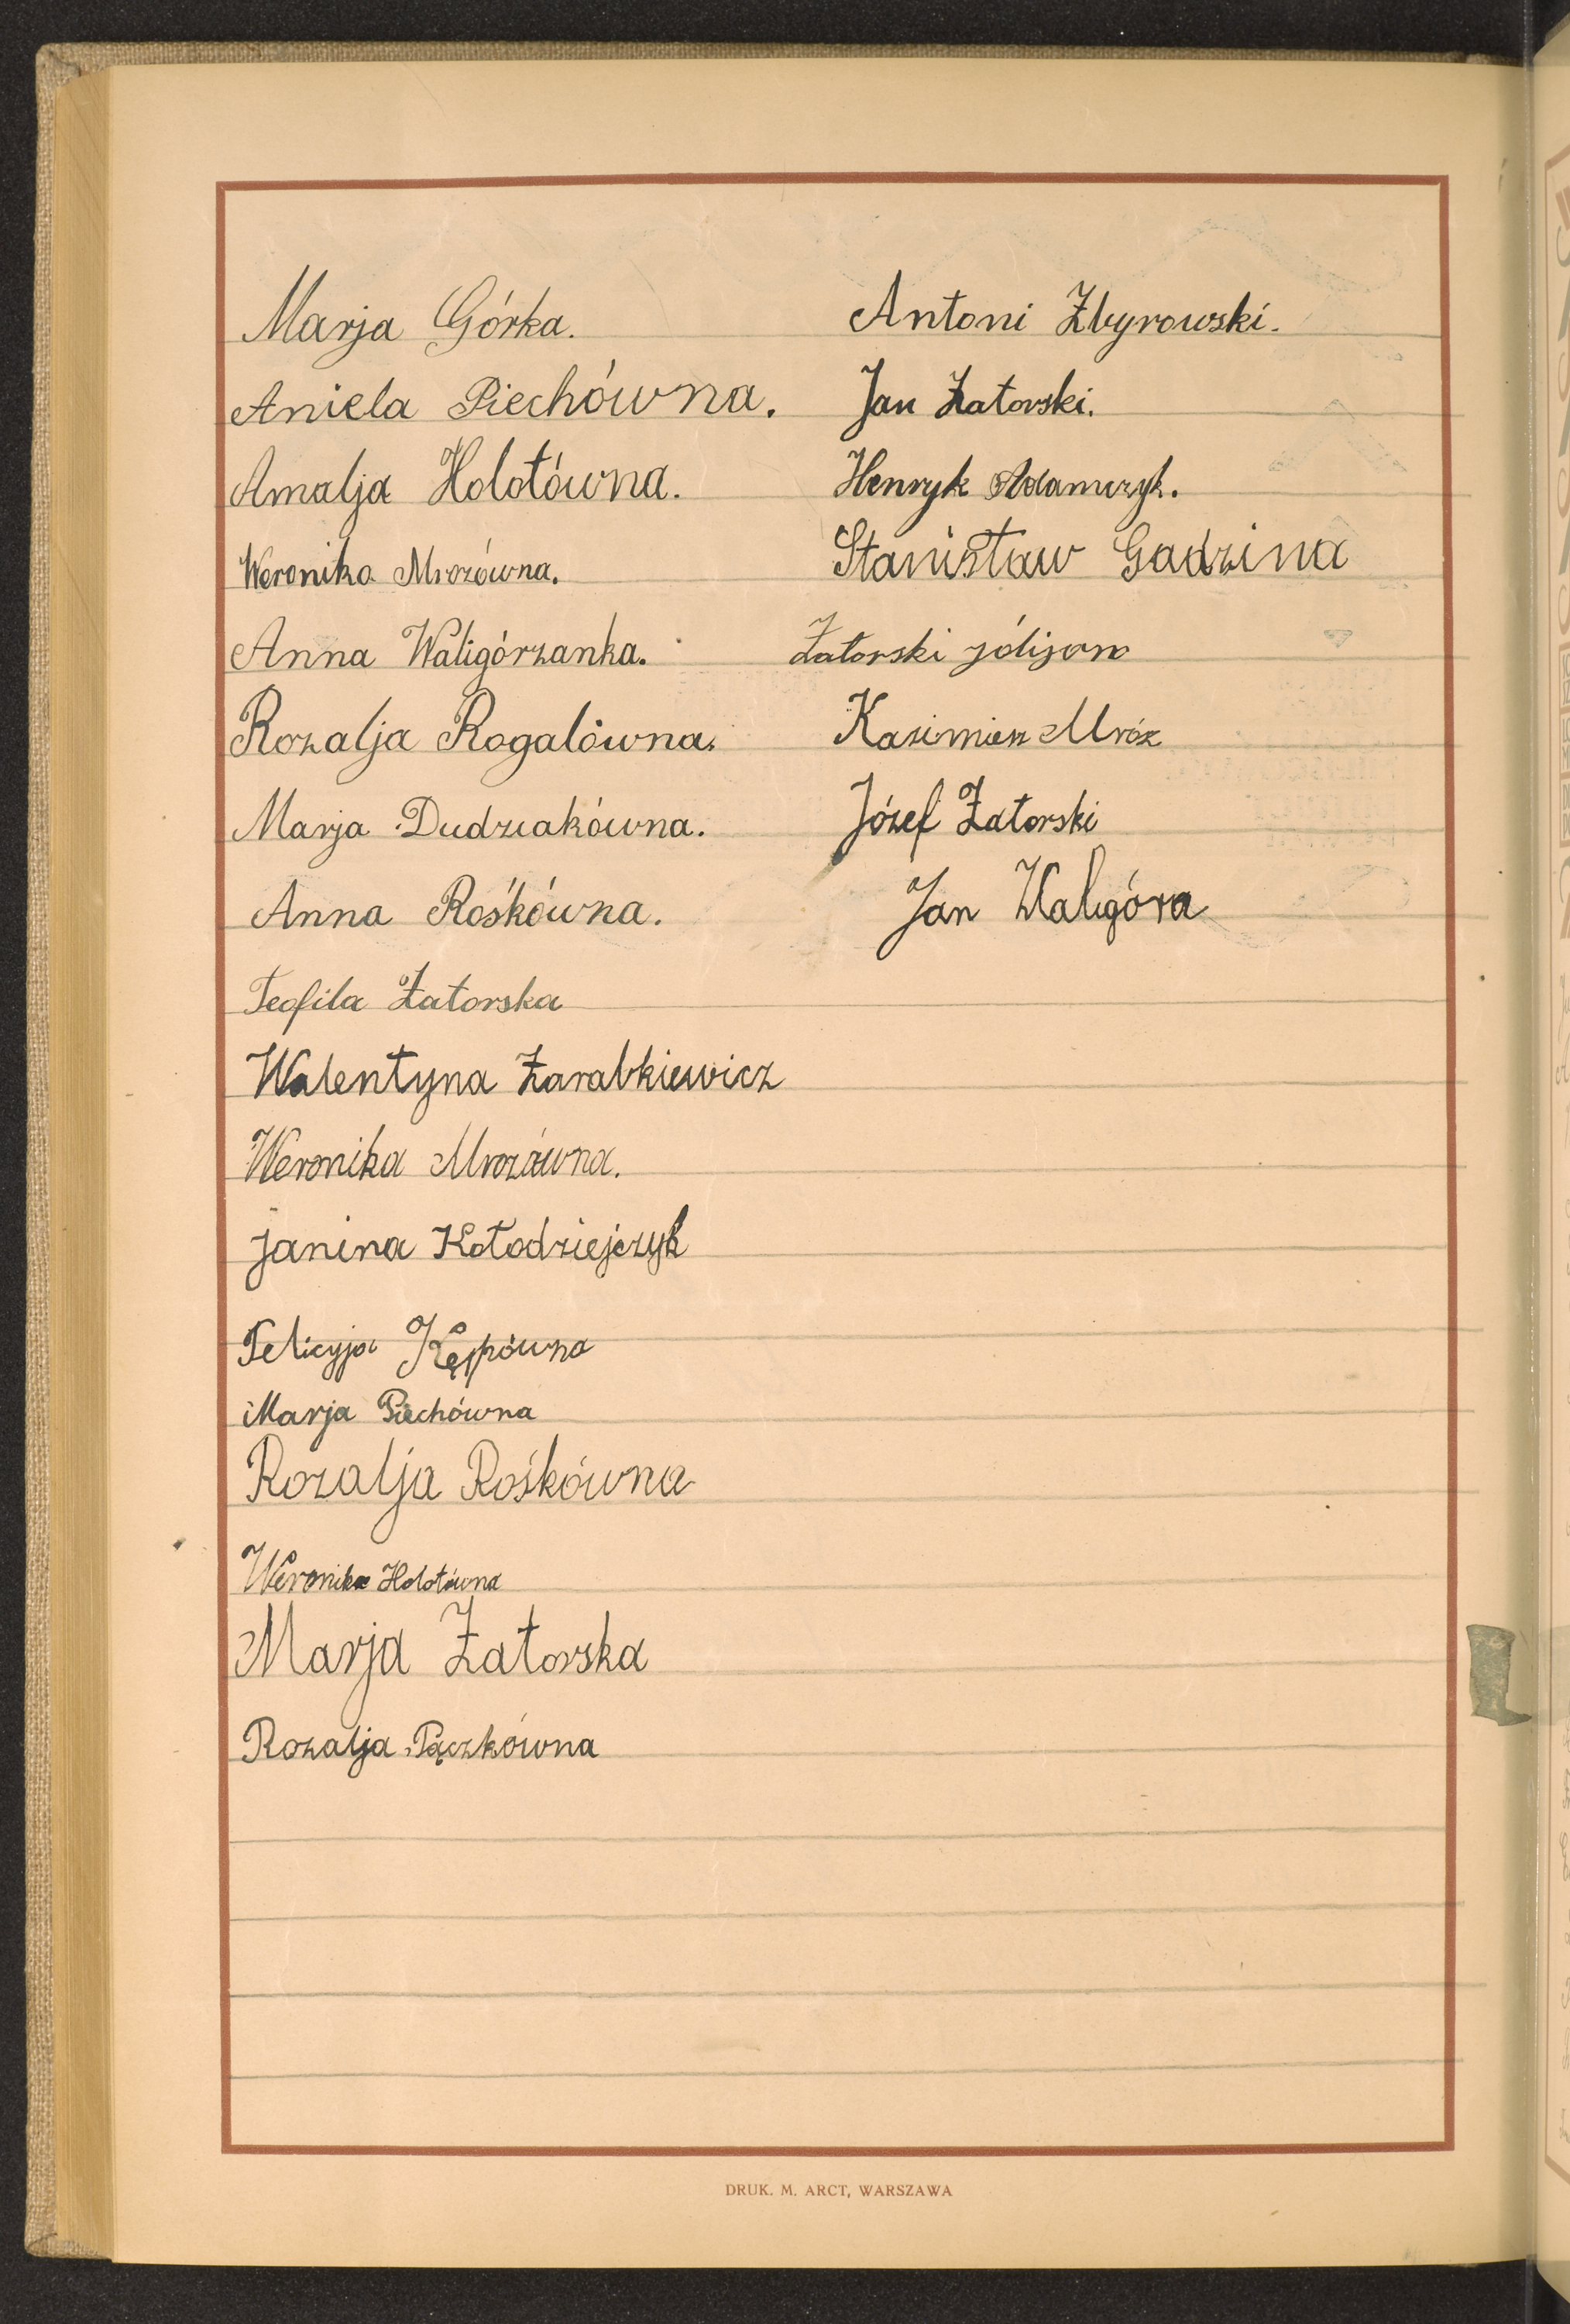 Marja Górka.
Aniela Piechówna.
Amalja Hołotówna.
Weronika Mrozówna.
Anna Waligórzanka.
Rozalja Rogalówna.
Marja Dudziakówna.
Anna Rośkówna.
Teofila Zatorska
Walentyna Zarabkiewicz
Weronika Mrozówna.
Janina Kołodziejczyk
Felicyja Kępówna
Marja Piechówna
Rozalja Rośkówna
Weronika Hołotówna
Marja Zatorska
Rozalja Pączkówna
Antoni Zbyrowski.
Jan Zatorski.
Henryk Adamczyk.
Stanisław Gadzina
Zatorski jólijan
Kazimierz Mróz
Józef Zatorski
Jan Waligóra
DRUK. M. ARCT, WARSZAWA